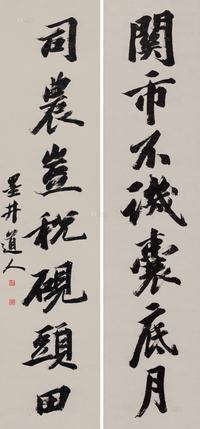 關市不譏囊底月
司農豈稅硯頭田
墨井道人